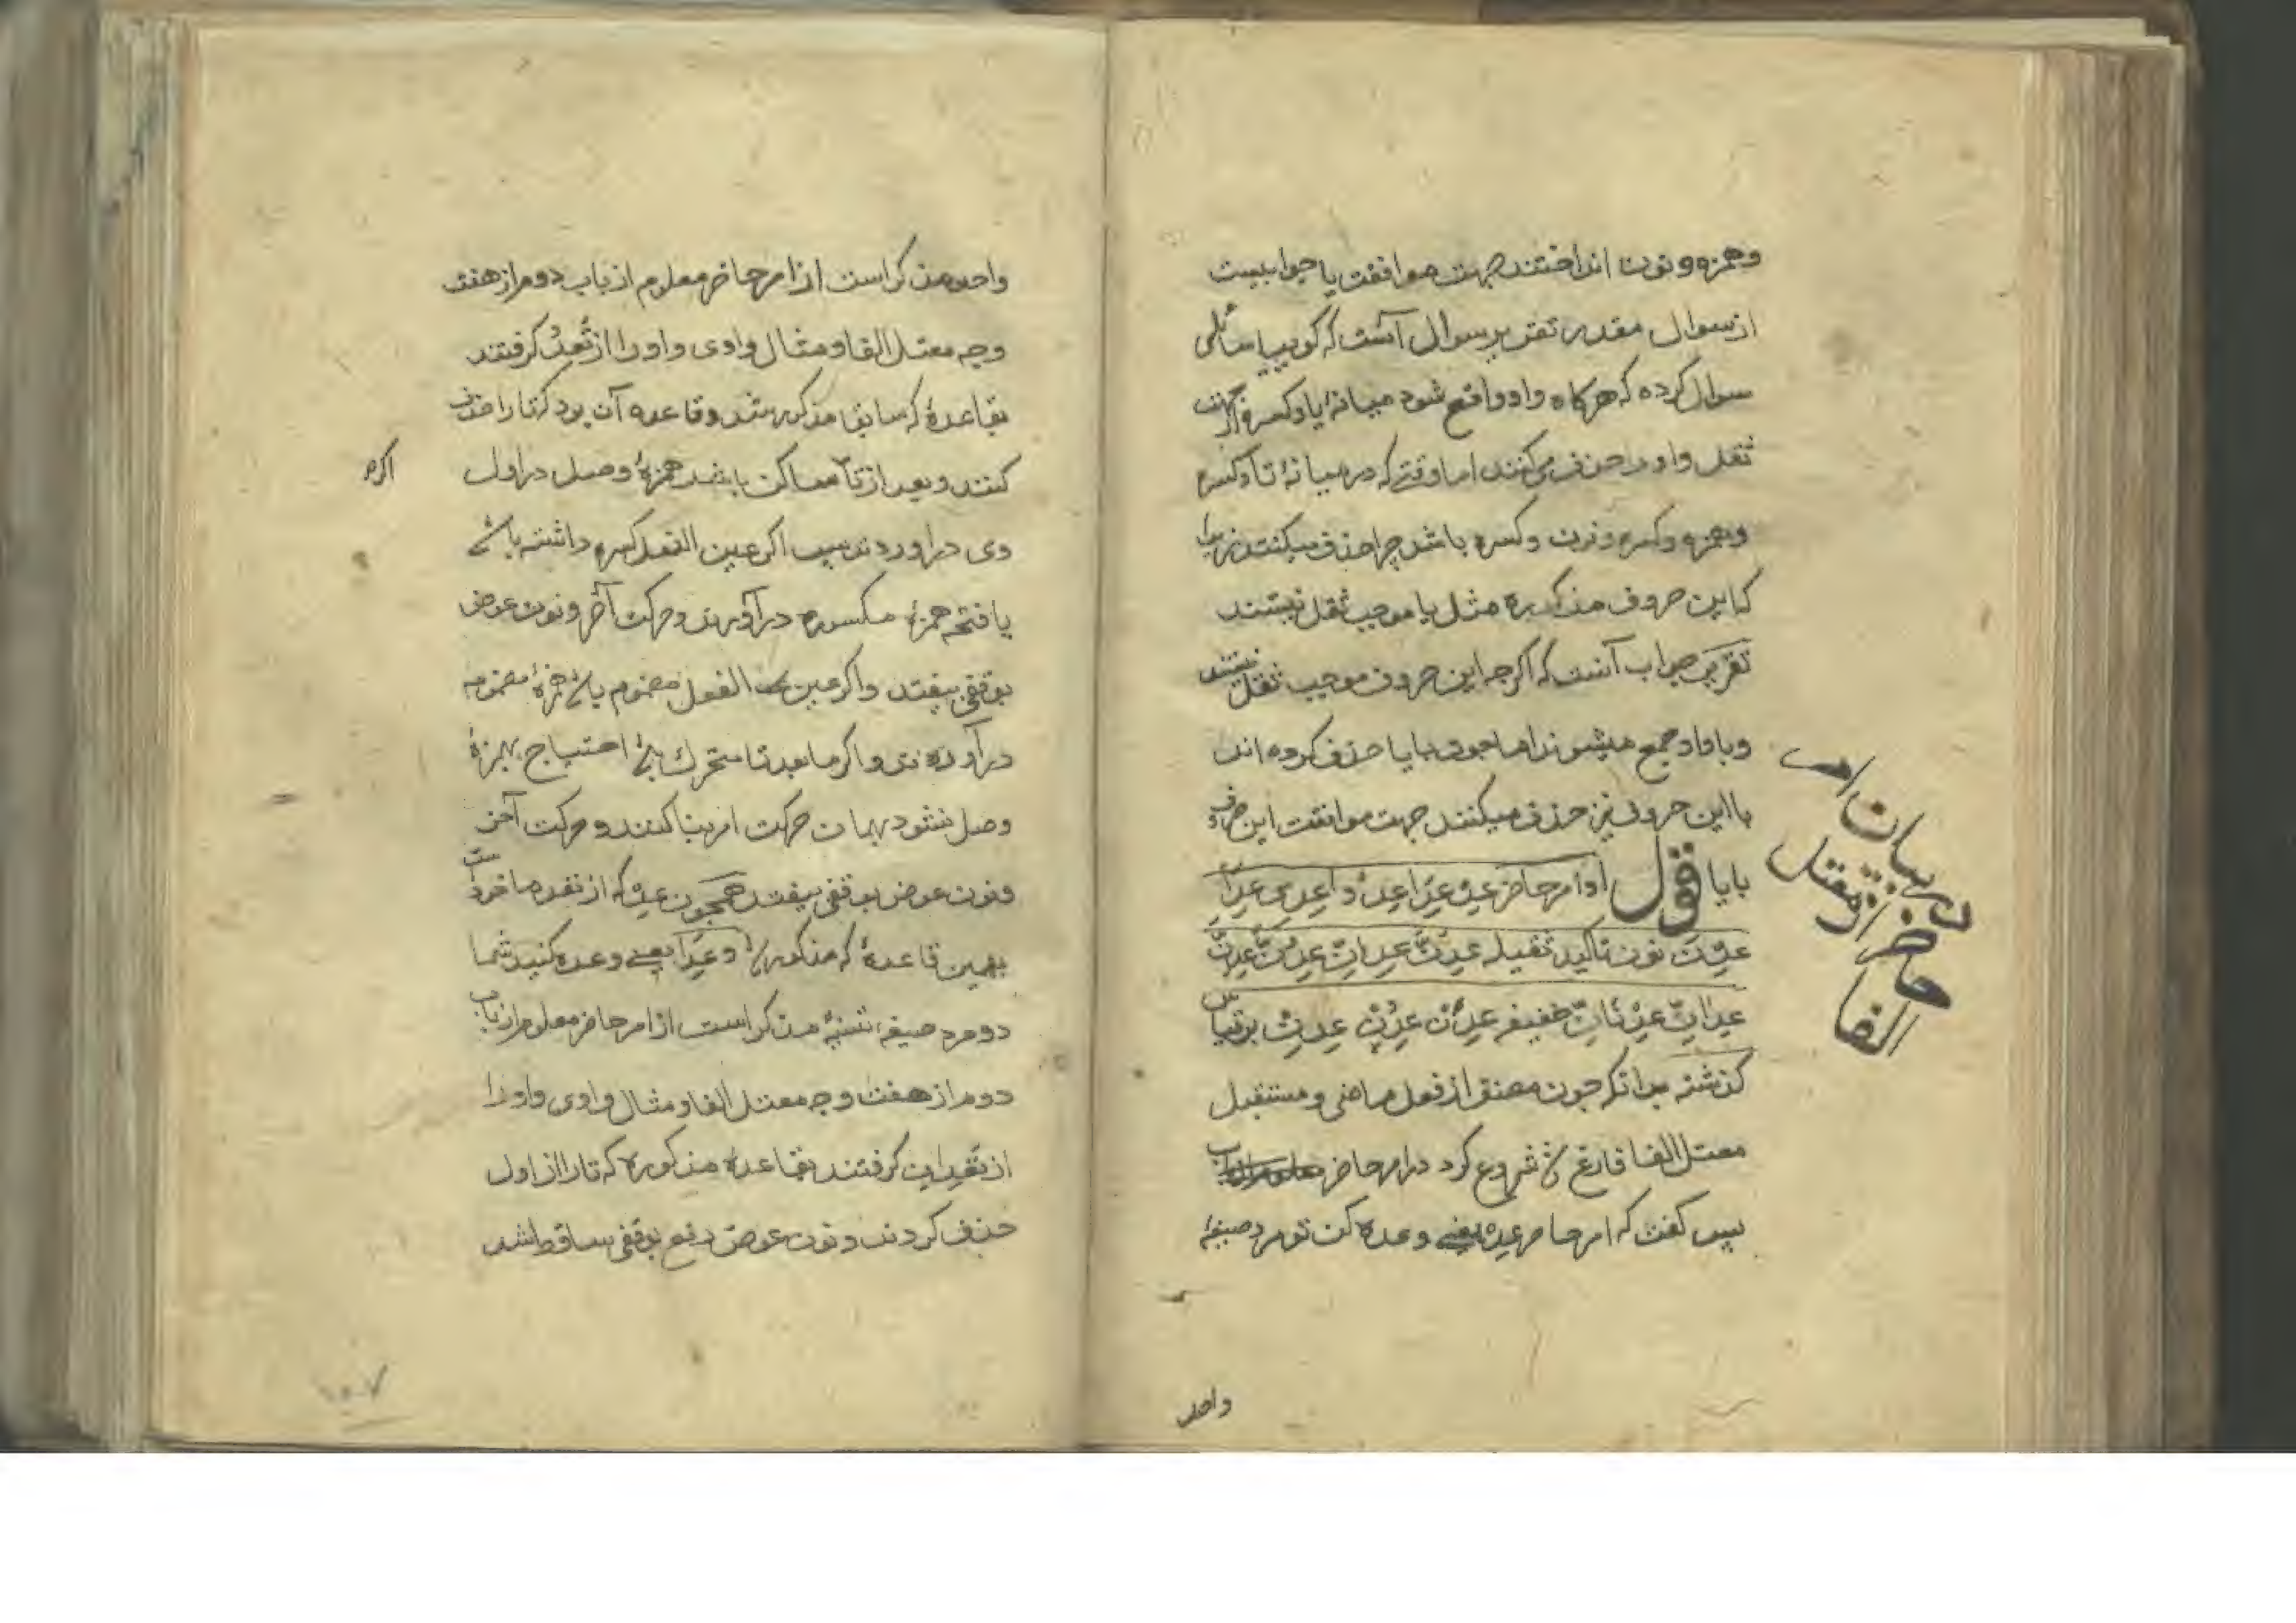 وهمزه و نون انداختند جهت موافقت یا جوابیست
از سوال مقدر تقریر سوال آنست که گوییا سائلی
سوال کرده که هرگاه واو واقع شود میانهٔ یا و کسره از جهت
ثقل واو را حذف می‌کنند اما وقتی که در میانهٔ تا و کسره
وهمزه و کسره و نون و کسره باشد چرا حذف میکنند زیرا
که این حروف مذکوره مثل یا موجب ثقل نیستند
تقریر جواب آنست که اگرچه این حروف موجب ثقل نیستند
و با واو جمع میشوند اما چون با یا حذف کرده اند
با این حروف نیز حذف میکنند جهت موافقت این حروف
با یا قول امر حاضر عِدْ عِدَا عِدُوا عِدِی عِدَا
عِدْنَ نون تاکید ثقیله عِدَنَّ عِدَانِّ عِدُنَّ عِدِنَّ
عِدَانِّ عِدْنَانِّ خفیفه عِدَنْ عِدُنْ عِدِنْ بر قیاس
گذشته بدانکه چون مصنف از فعل ماضی و مستقبل
معتل الفا فارغ شد شروع کرد در امر حاضر
پس گفت که امر حاضر عِدْ یعنی وعده کن تو مرد صیغهٔ
در بیان امر
حاضر از معتل
الفا
واحد
واحد مذکر است از امر حاضر معلوم از باب دوم از هفت
وجه معتل الفا و مثال واوی واو را از تَعِدُ گرفتند
بقاعدهٔ که سابق مذکور شد و قاعده آن بود که تا را حذف
کنند و بعد از تا ساکن باشد همزهٔ وصل در اول
وی در اوردند پس اگر عین الفعل کسره داشته باشد
یا فتحه همزهٔ مکسوره در آورند و حرکت آخر و نون عوض
بوقفی بیفتد و اگر عین الفعل مضموم باشد همزهٔ مضمومه
در آورند و اگر ما بعد تا متحرک باشد احتیاج بهمزهٔ
وصل نشود بهمان حرکت امر بنا کنند و حرکت آخر
و نون عوض بوقفی بیفتد همچون عِدْ که از تعد ماخوذ است
بهمین قاعدهٔ که مذکور شد و عِدَا یعنی وعده کنید شما
دو مرد صیغهٔ تثنیهٔ مذکر است از امر حاضر معلوم از باب
دوم از هفت وجه معتل الفا و مثال واوی واو را
از تَعِدانِ گرفتند بقاعدهٔ مذکوره که تا را از اول
حذف کردند و نون عوض رفع بوقفی ساقط شد